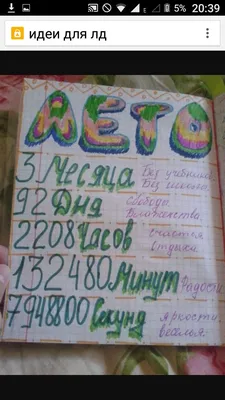 5% 20:39
идеи для лд
ЛЕТО
3 Месяца Без учебников
Без школы.
92 Дня Свободы.
Блаженства.
2208 Часов счастья
Отдыха.
132480 Минут Радости
7948800 Секунд яркости,
веселья.